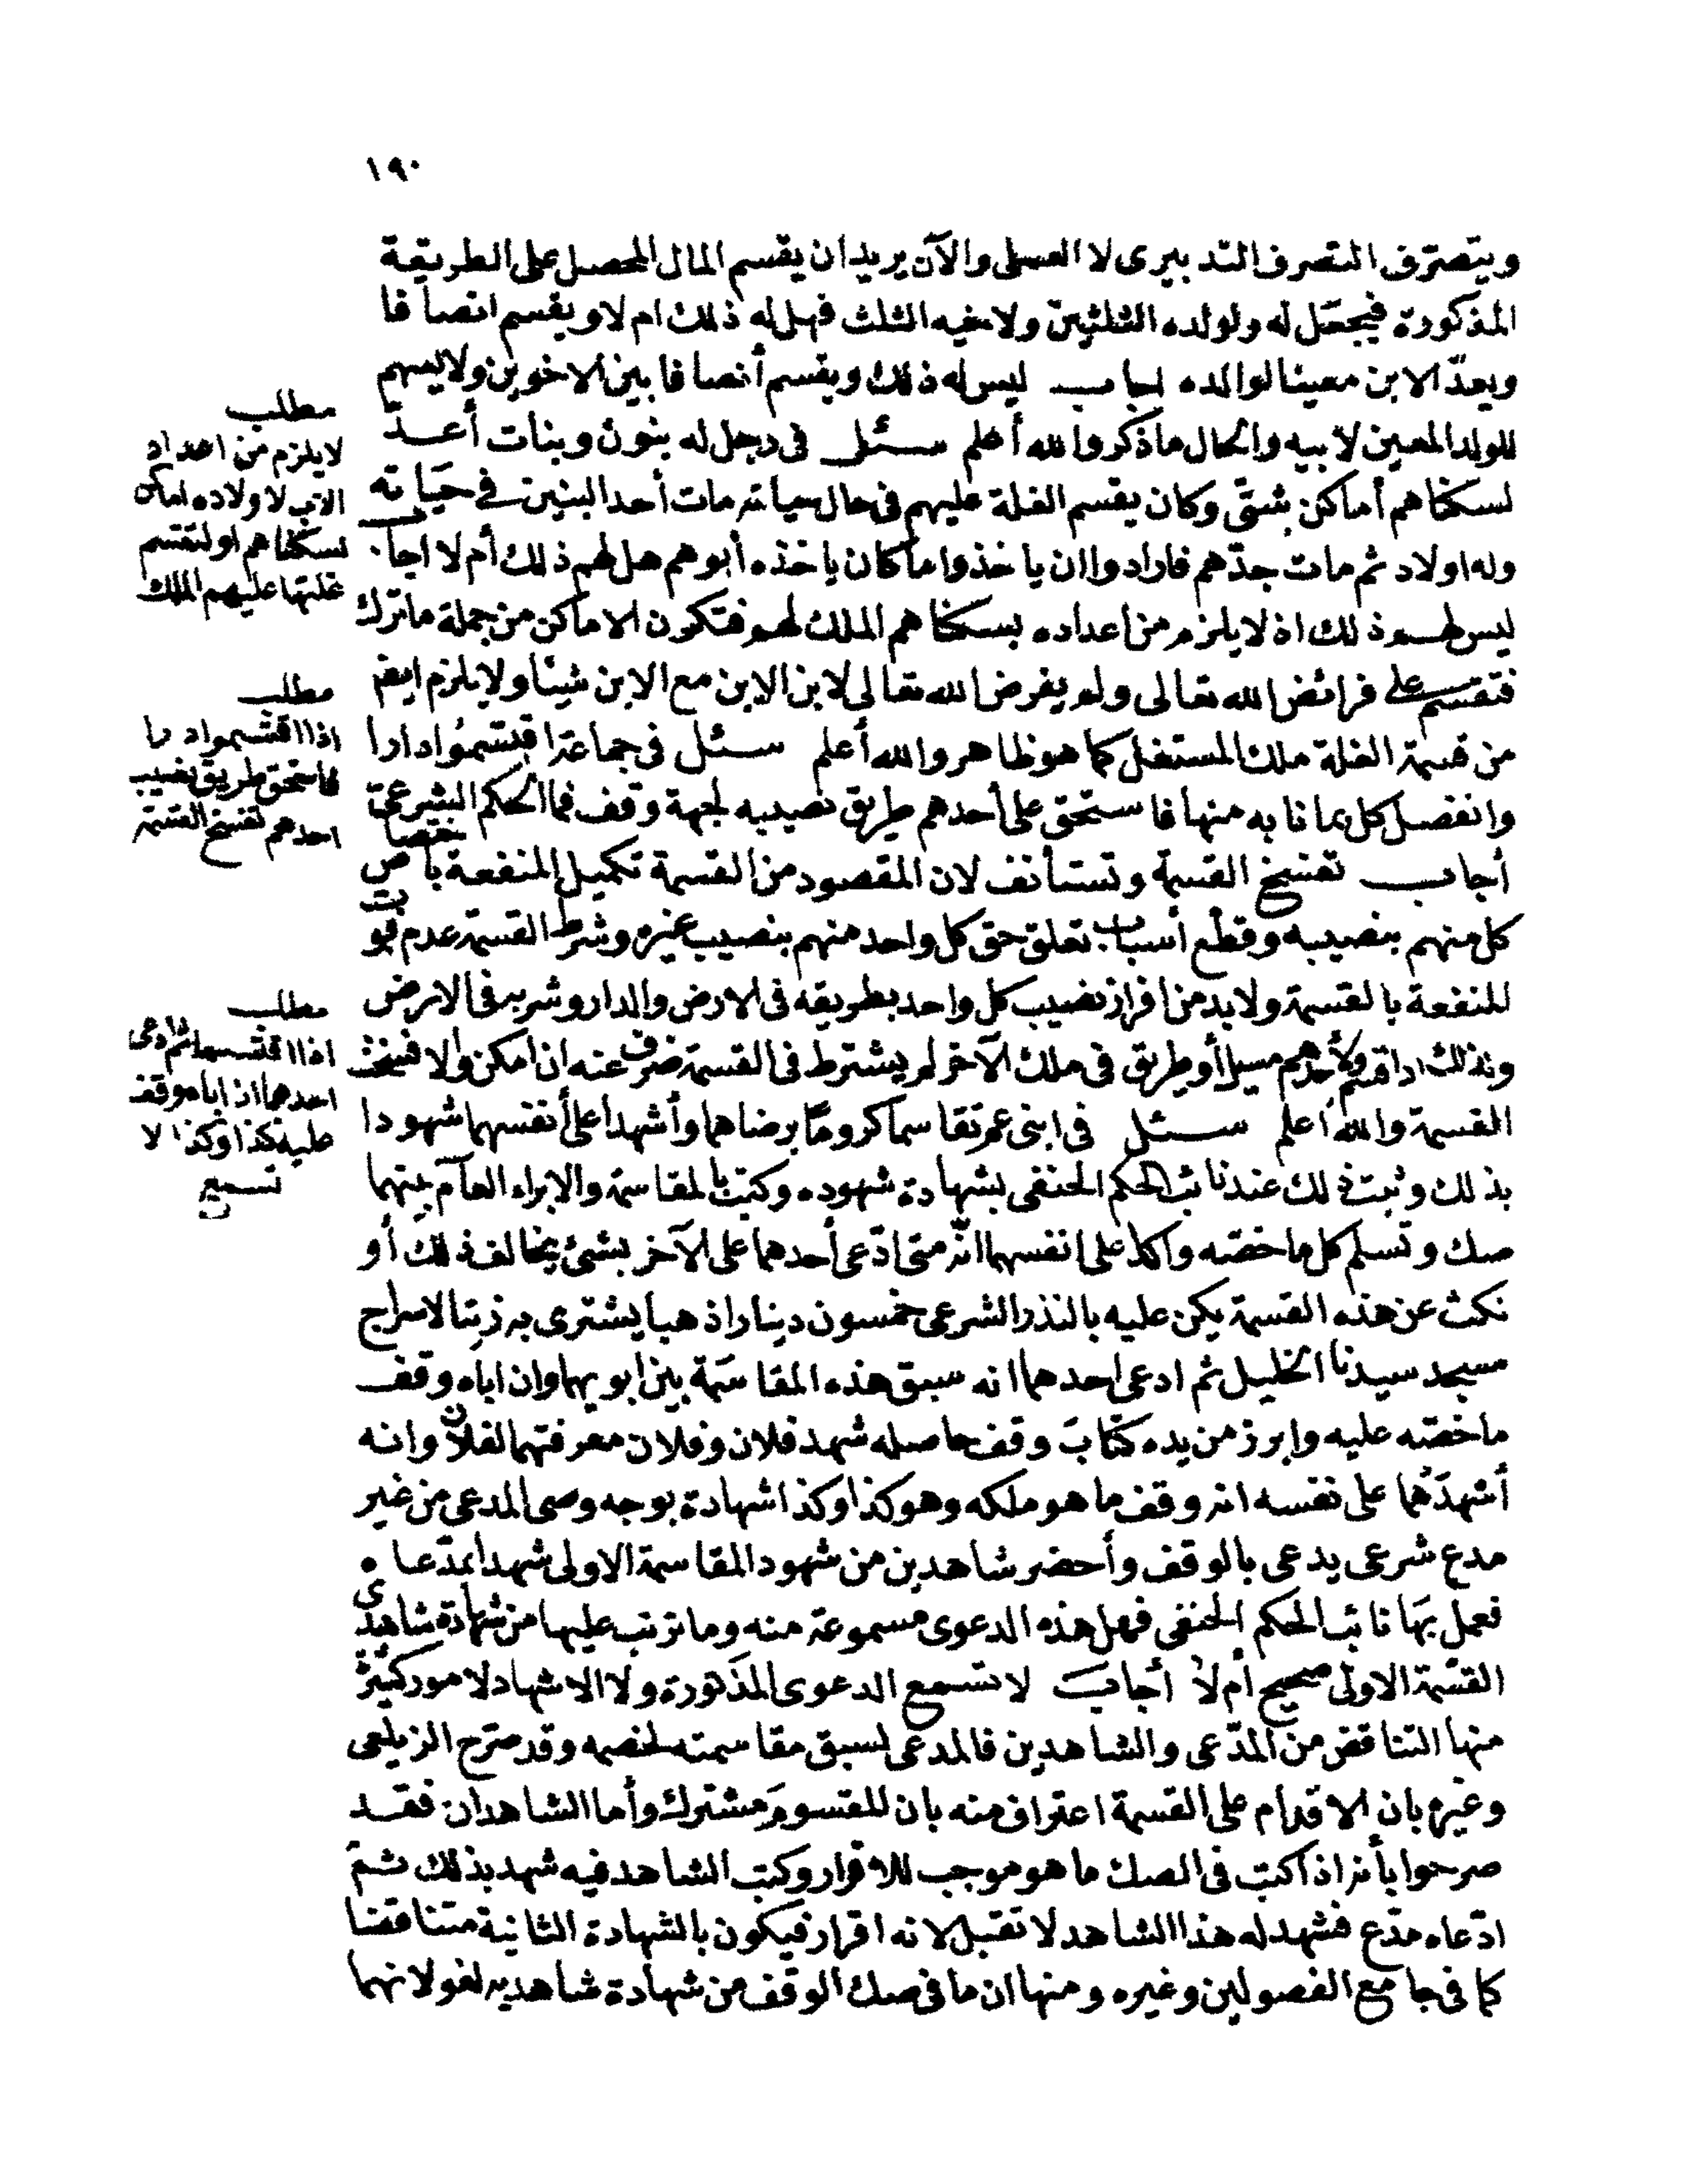 ١٩٠
ويتصرف التصرف التدبيرى لا العملى والآن يريد ان يقسم المال المحصل على الطريقة
المذكورة فيجعل له ولولده الثلثين ولاخيه الثلث فهل له ذلك ام لا ويقسم انصافا
ويعدّ الابن معينا لوالده اجاب ليس له ذلك ويقسم أنصافا بين الاخوين ولا يسهم
للولد المعين لابيه والحال ما ذكر والله أعلم سئل فى رجل له بنون وبنات أعدّ
لسكناهم أماكن شتّى وكان يقسم الغلة عليهم فى حال حياته مات أحد البنين فى حياته
وله اولاد ثم مات جدّهم فارادوا ان ياخذوا ما كان ياخذه أبوهم هل لهم ذلك أم لا اجاب
ليس لهم ذلك اذ لا يلزم من اعداده بسكناهم الملك لهم فتكون الاماكن من جملة ما ترك
فتقسم على فرائض الله تعالى ولم يفرض الله تعالى لابن الابن مع الابن شيئا ولا يلزم ايضا
من قسمة الغلة ملك المستغل كما هو ظاهر والله أعلم سئل فى جماعة اقتسموا دارا
وانفصل كل بما نابه منها فاستحق على أحدهم طريق نصيبه لجهة وقف فما الحكم الشرعى
أجاب تفسخ القسمة وتستأنف لان المقصود من القسمة تكميل المنفعة باختصاص
كل منهم بنصيبه وقطع أسباب تعلق حق كل واحد منهم بنصيب غيره وشرط القسمة عدم فوت
للمنفعة بالقسمة ولا بد من افراز نصيب كل واحد بطريقه فى الارض والدار وشربه فى الارض
ولذلك اذا قسم ولأحدهم مسيل أو طريق فى ملك الآخر لم يشترط فى القسمة صرف عنه ان امكن والا فسخت
القسمة والله أعلم سئل فى ابنى عم تقاسما كروما برضاهما وأشهدا على أنفسهما شهودا
بذلك وثبت ذلك عند نائب الحكم الحنفى بشهادة شهوده وكتب بالمقاسمة والابراء العام بينهما
صك وتسلم كل ما خصّه واكدا على انفسهما انّه متى ادّعى أحدهما على الآخر بشئ يخالف ذلك أو
نكث عن هذه القسمة يكن عليه بالنذر الشرعى خمسون دينارا ذهبا يشترى به زيتا لاسراج
مسجد سيدنا الخليل ثم ادعى احدهما انه سبق هذه المقاسمة بين ابويهما وان اباه وقف
ما خصّه عليه وابرز من يده كتاب وقف حاصله شهد فلان وفلان معرفتهما لفلان وانه
أشهدهما على نفسه انه وقف ما هو ملكه وهو كذا وكذا شهادة بوجه وصى المدعى من غير
مدع شرعى يدعى بالوقف وأحضر شاهدين من شهود المقاسمة الاولى شهدا بمدّعاه
فعمل بها نائب الحكم الحنفى فهل هذه الدعوى مسموعة منه وما ترتب عليها من شهادة شاهدى
القسمة الاولى صحيح أم لا أجاب لا تسمع الدعوى المذكورة ولا الاشهاد لامور كثيرة
منها التناقض من المدّعى والشاهدين فالمدعى لسبق مقاسمته لخصمه وقد صرّح الزيلعى
وغيره بان الاقدام على القسمة اعتراف منه بان للمقسوم مشترك وأما الشاهدان فقد
صرحوا بأنه اذا كتب فى الصك ما هو موجب للاقرار وكتب الشاهد فيه شهد بذلك ثم
ادّعاه مدّع فشهد له هذا الشاهد لا تقبل لانه اقرار فيكون بالشهادة الثانية متناقضا
كما فى جامع الفصولين وغيره ومنها ان ما فى صك الوقف من شهادة شاهديه لغو لانهما
مطلب
لا يلزم من اعداد
الاب لاولاده اماكن
لسكناهم او لتقسم
غلتها عليهم الملك
مطلب
اذا اقتسموا دارا
فاستحق طريق نصيب
احدهم تفسخ القسمة
مطلب
اذا اقتسما ثم ادعى
احدهما ان اباه وقف
عليه كذا وكذا لا
تسمع